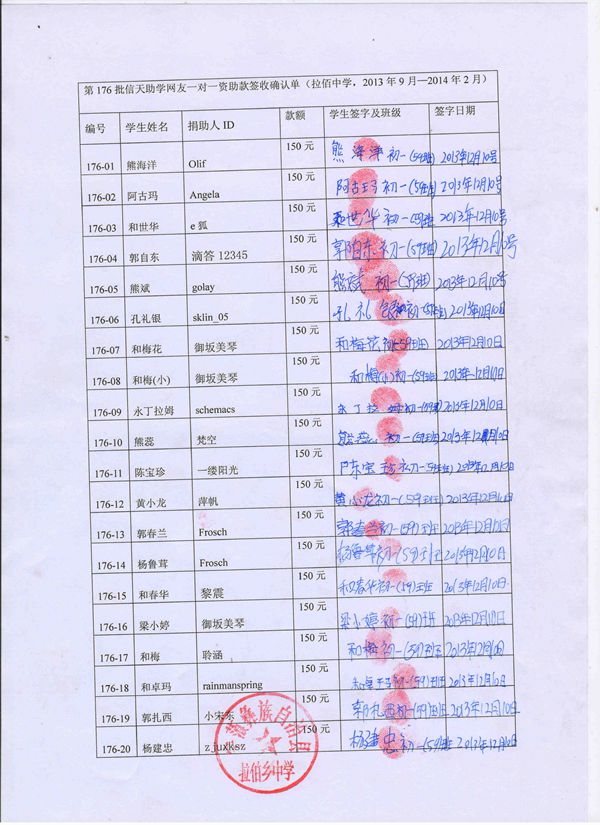 第 176 批信天助学网友一对一资助款签收确认单（拉佰中学，2013 年 9 月—2014 年 2 月）
编号 学生姓名 捐助人 ID 款额 学生签字及班级 签字日期
176-01 熊海洋 Olif 150 元 熊海洋 初一(59班) 2013年12月10号
176-02 阿古玛 Angela 150 元 阿古玛 初一(59班) 2013年12月10号
176-03 和世华 e 狐 150 元 和世华 初一(59班) 2013年12月10号
176-04 郭自东 滴答 12345 150 元 初一(59班) 2013年12月10号
176-05 熊斌 golay 150 元 熊斌 初一(59班) 2013年12月10号
176-06 孔礼银 sklin_05 150 元 孔礼银 2013年12月10日
176-07 和梅花 御坂美琴 150 元 和梅花 初一59班 2013年12月10日
176-08 和梅(小) 御坂美琴 150 元 和梅(小)初一(59班) 2013年12月10日
176-09 永丁拉姆 schemacs 150 元 2013年12月10日
176-10 熊蕊 梵空 150 元 初一(59班) 2013年12月10日
176-11 陈宝珍 一缕阳光 150 元 陈宝珍 初一(59班) 2013年12月10日
176-12 黄小龙 萍帆 150 元 黄小龙初一(59)班 2013年12月10日
176-13 郭春兰 Frosch 150 元 郭春兰初一(59)班 2013年12月10日
176-14 杨鲁茸 Frosch 150 元 初一(59)班 2013年12月10日
176-15 和春华 黎震 150 元 和春华初一(59)班 2013年12月10日
176-16 梁小婷 御坂美琴 150 元 梁小婷初一(59)班 2013年12月10日
176-17 和梅 聆涵 150 元 和梅初一(59)班 2013年12月10日
176-18 和卓玛 rainmanspring 150 元 和卓玛初一(59)班 2013年12月10日
176-19 郭扎西 小宋东 150 元 郭扎西初一(59)班 2013年12月10日
176-20 杨建忠 z_juxksz 150 元 杨建忠 初一(59)班 2013年12月10日
彝族自治县
拉伯乡中学